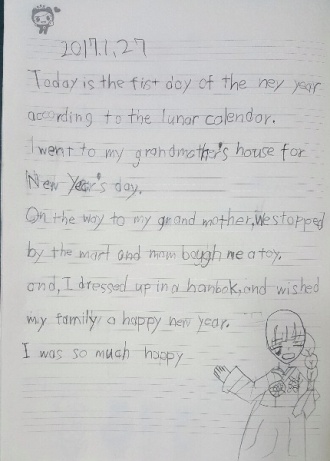 2017.1.27
Today is the fist day of the ney year
according to the lunar calendar.
I went to my grandmother's house for
New Year's day.
On the way to my grand mother, We stopped
by the mart and mom bough me a toy.
and, I dressed up in a hanbok, and wished
my family a happy new year.
I was so much happy